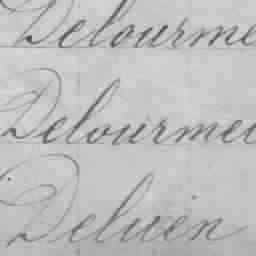 Delourme
Delourmel
Deluen